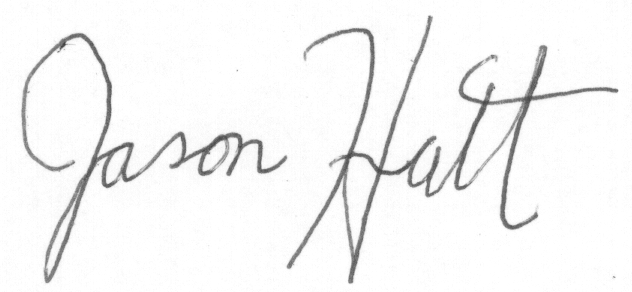 Jason Hatt